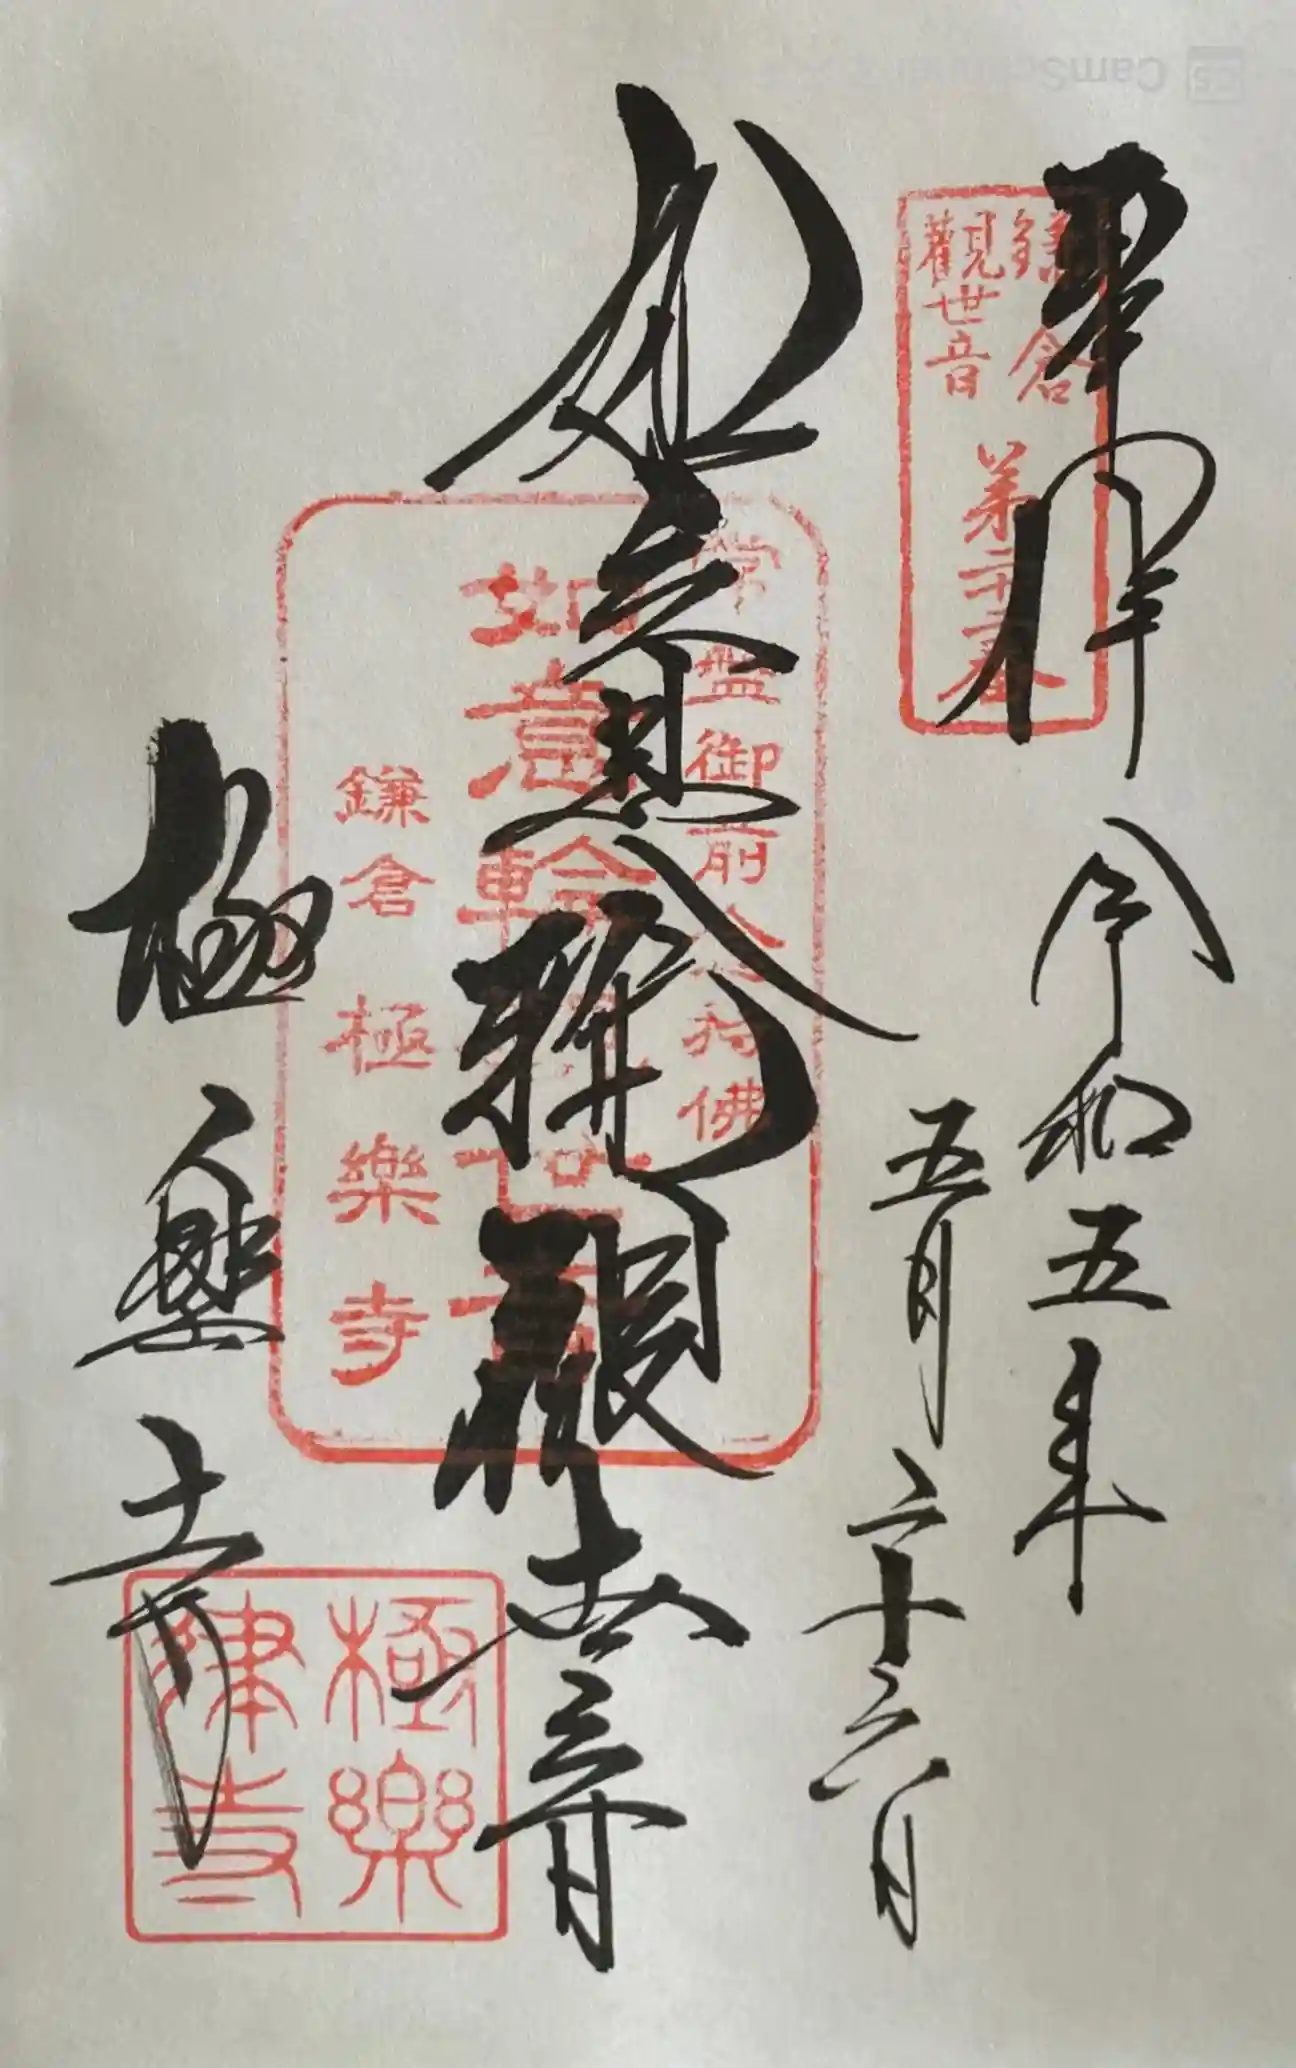 奉拝
令和五年
五月二十六日
鎌倉
觀世音
第二十二番
如意輪觀世音
常盤御前念持佛
如意輪觀世音
鎌倉極樂寺
極樂寺
極樂
律寺